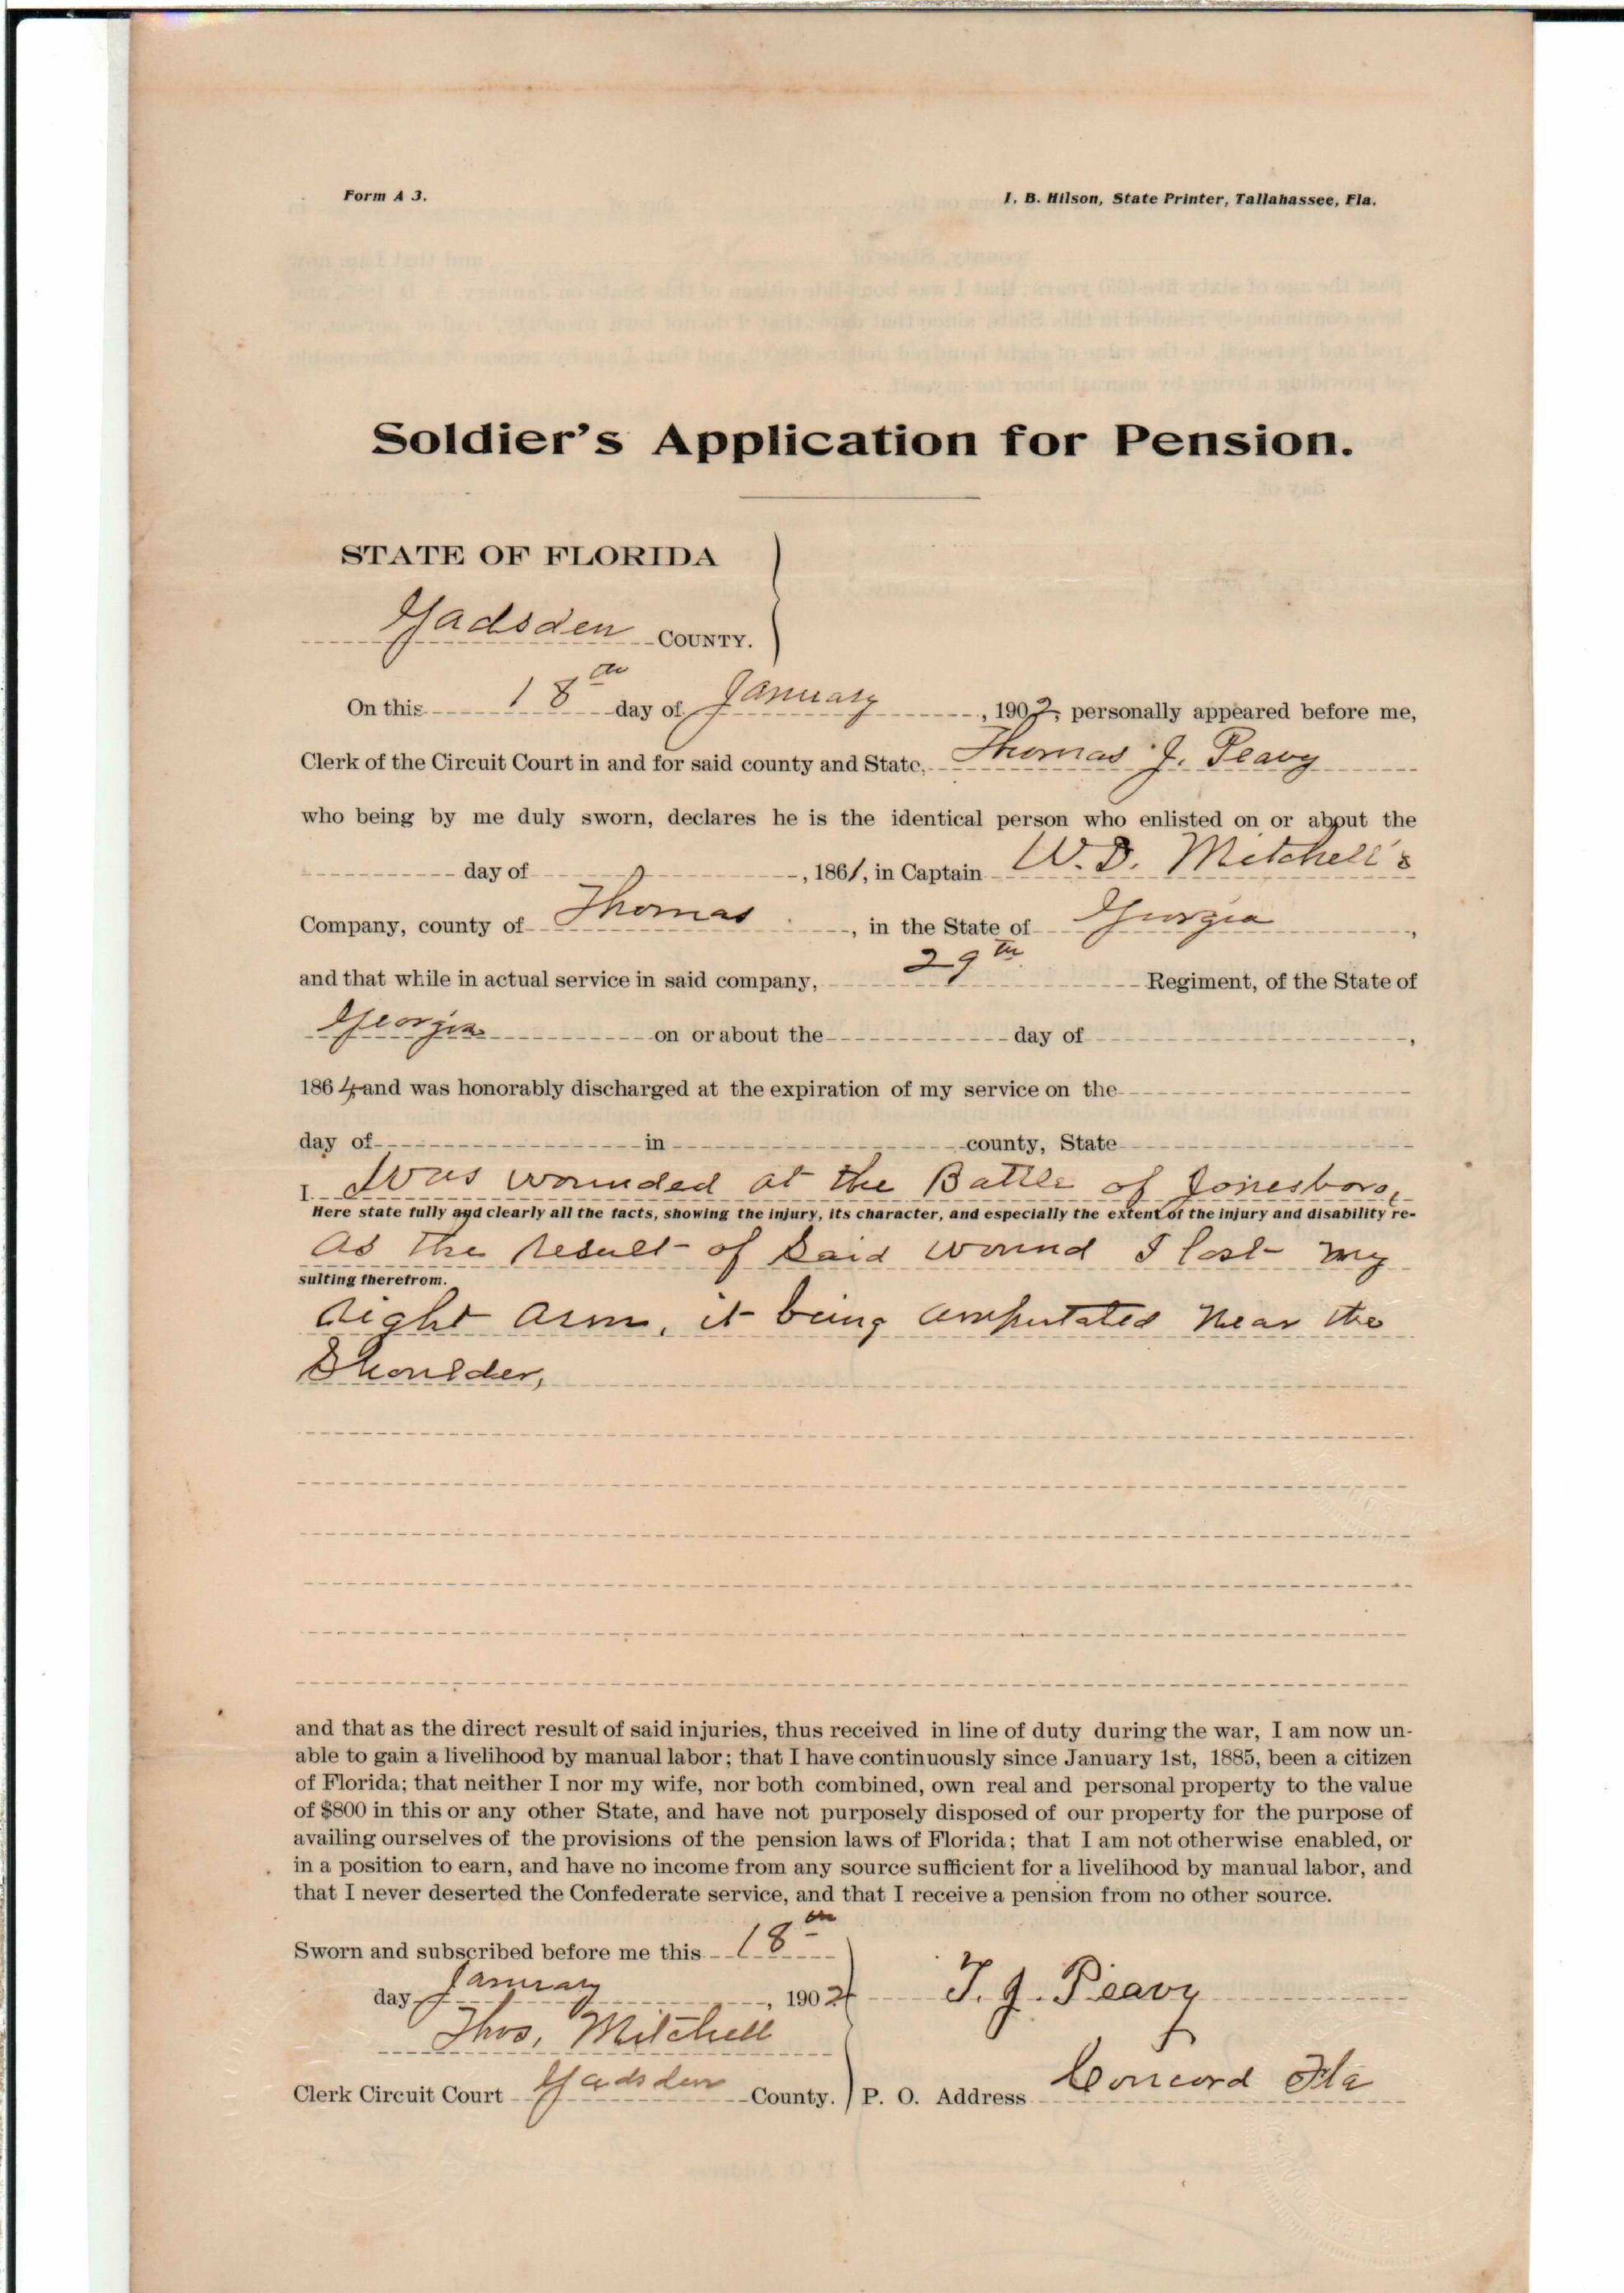 Form A 3.
I. B. Hilson, State Printer, Tallahassee, Fla.
Soldier's Application for Pension.
STATE OF FLORIDA
Gadsden COUNTY.
On this 18th day of January, 1902, personally appeared before me,
Clerk of the Circuit Court in and for said county and State, Thomas J. Peavy
who being by me duly sworn, declares he is the identical person who enlisted on or about the
day of , 1861, in Captain W. D. Mitchell's
Company, county of Thomas, in the State of Georgia,
and that while in actual service in said company, 29th Regiment, of the State of
Georgia on or about the day of ,
1864 and was honorably discharged at the expiration of my service on the
day of in county, State
I. I was wounded at the Battle of Jonesboro,
Here state fully and clearly all the facts, showing the injury, its character, and especially the extent of the injury and disability re-
as the result of said wound I lost my
sulting therefrom.
right arm, it being amputated near the
Shoulder,
and that as the direct result of said injuries, thus received in line of duty during the war, I am now un-
able to gain a livelihood by manual labor; that I have continuously since January 1st, 1885, been a citizen
of Florida; that neither I nor my wife, nor both combined, own real and personal property to the value
of $800 in this or any other State, and have not purposely disposed of our property for the purpose of
availing ourselves of the provisions of the pension laws of Florida; that I am not otherwise enabled, or
in a position to earn, and have no income from any source sufficient for a livelihood by manual labor, and
that I never deserted the Confederate service, and that I receive a pension from no other source.
Sworn and subscribed before me this 18th
day January, 1902 T. J. Peavy
Thos. Mitchell
Clerk Circuit Court Gadsden County. P. O. Address Concord Fla